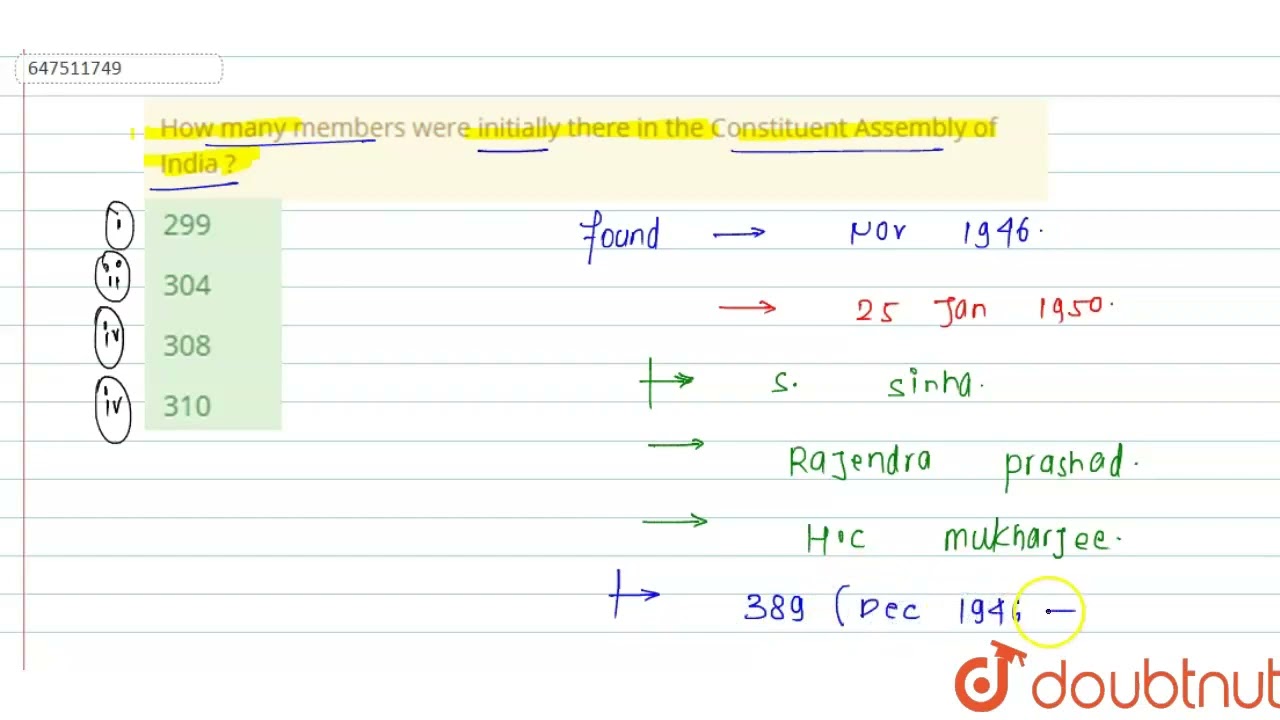 647511749
How many members were initially there in the Constituent Assembly of
India ?
i 299
ii 304
iv 308
iv 310
found → Nov 1946.
→ 25 Jan 1950.
→ S. Sinha.
→ Rajendra prashad.
→ H.C mukharjee.
→ 389 (Dec 1946 —
doubtnut